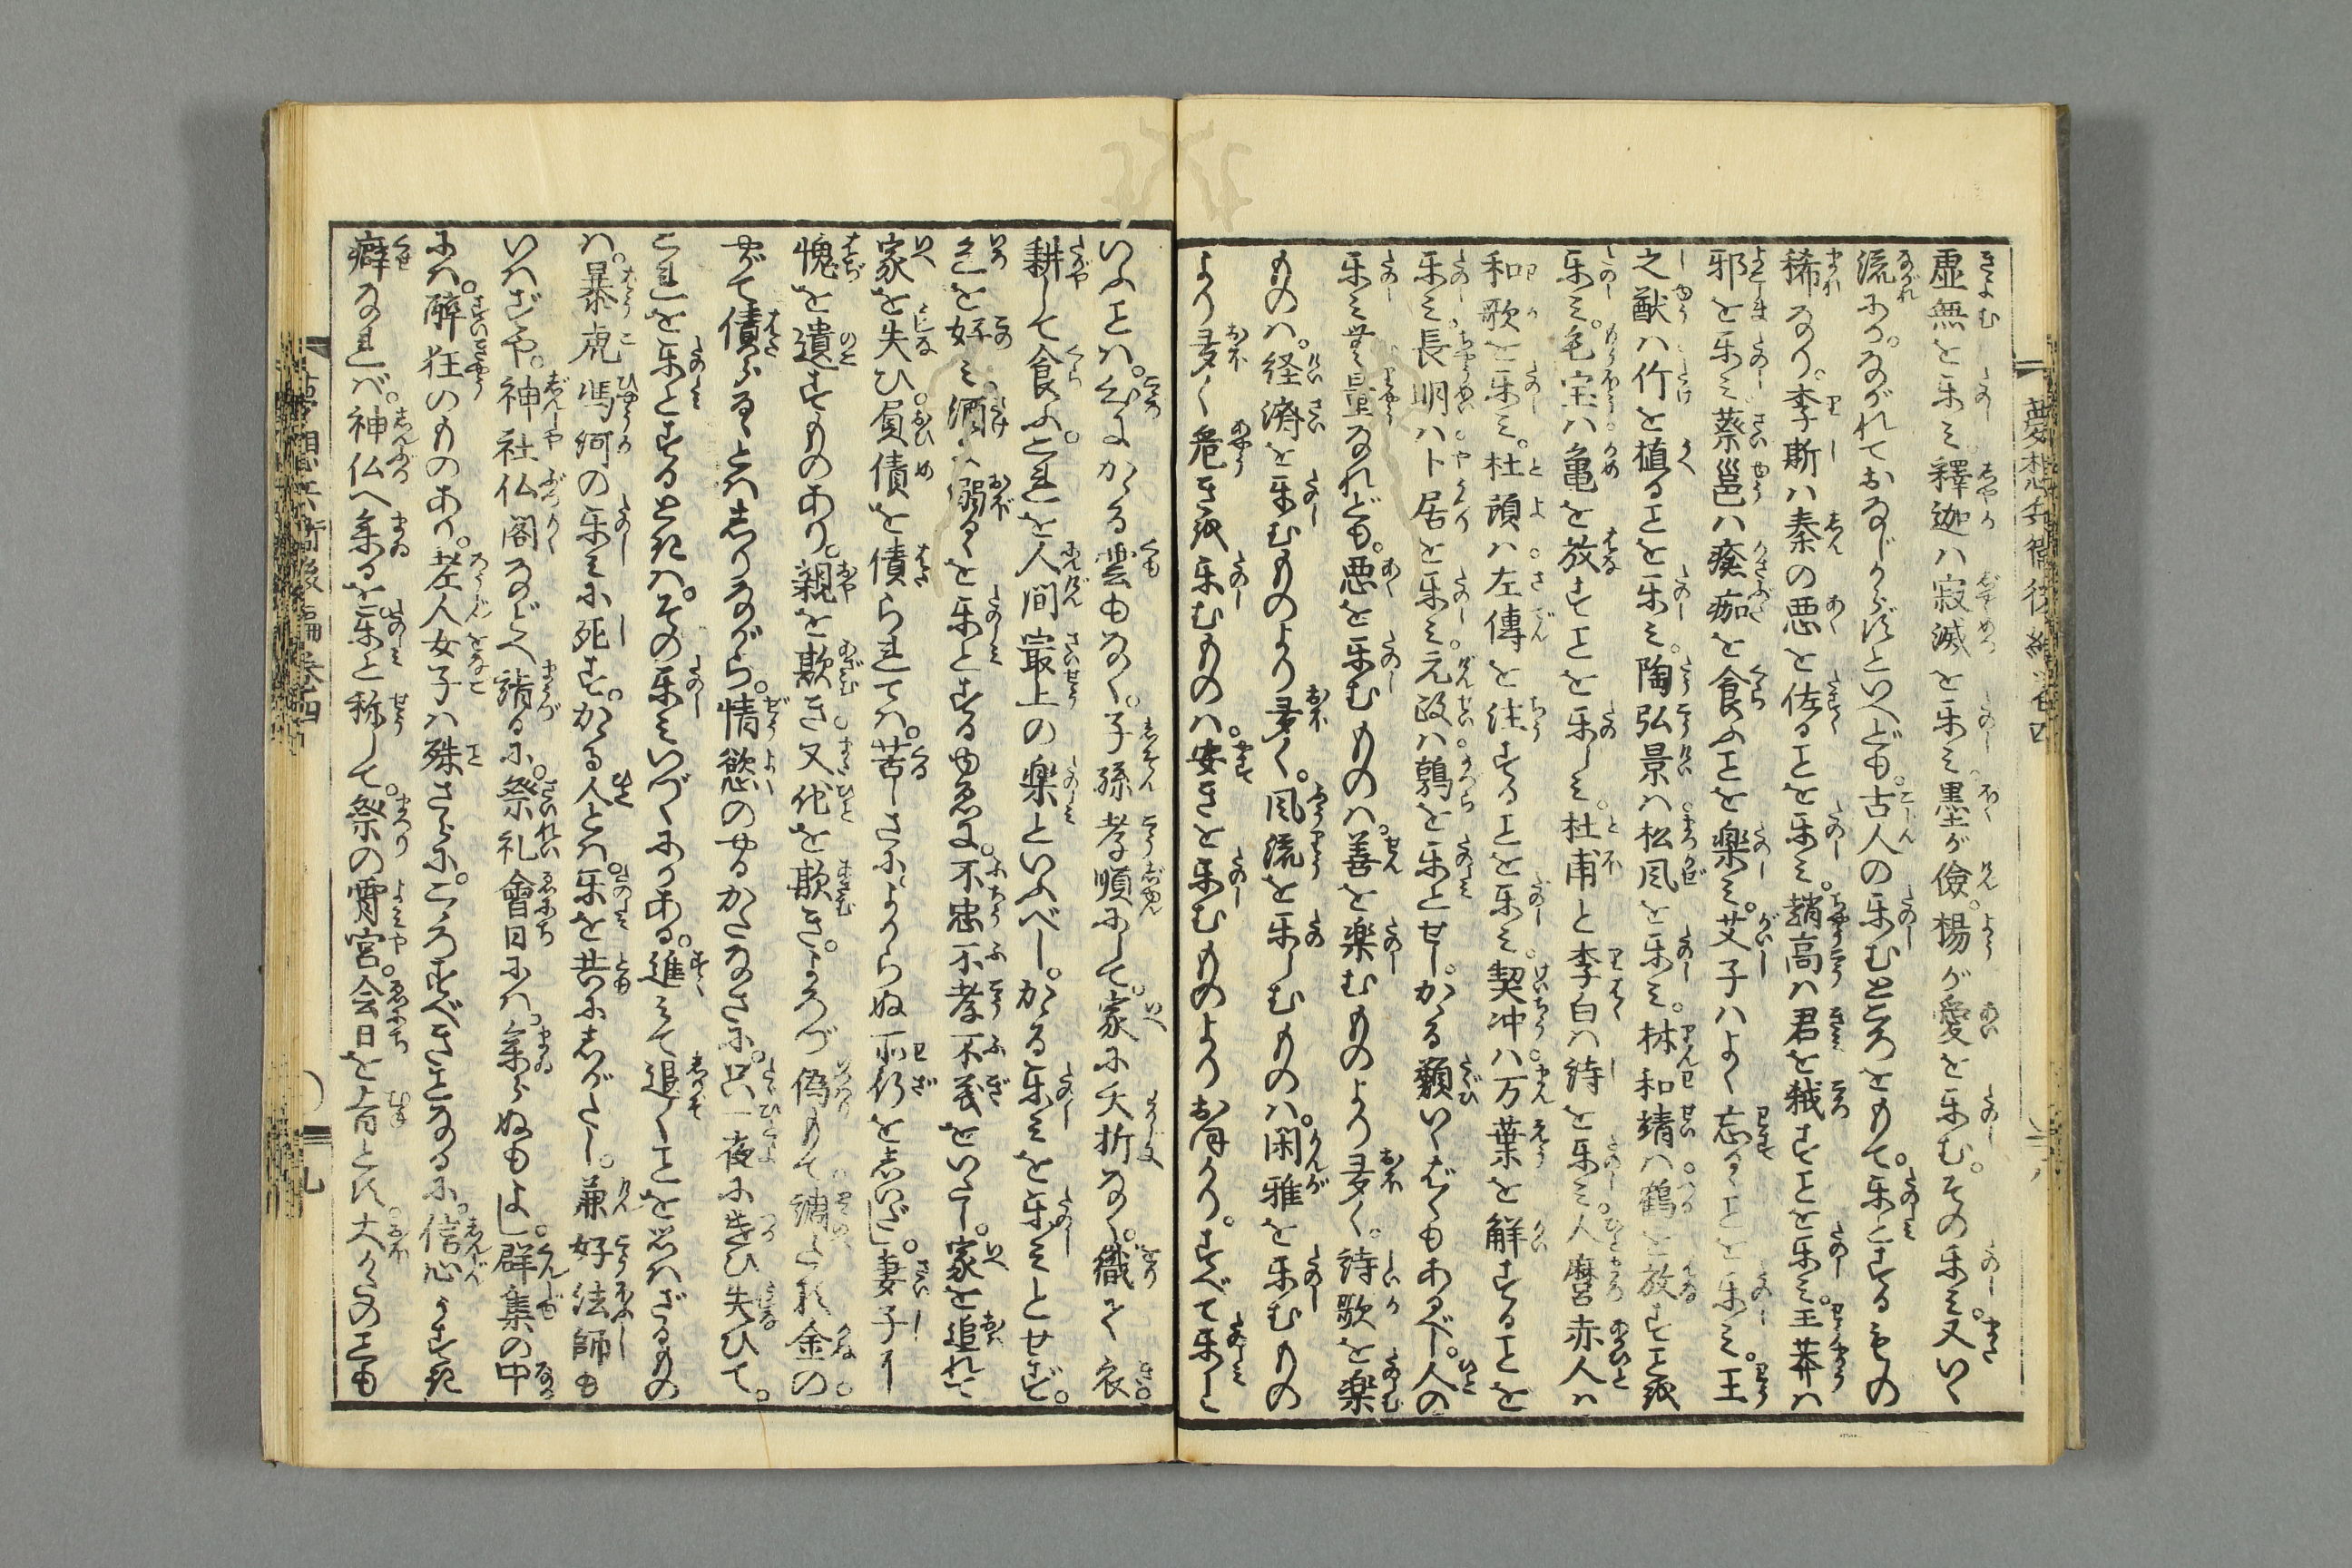 虚無を楽み。釋迦ハ寂滅を楽み。墨が儉。楊が愛を楽む。その楽ミ。又いく
流ぞや。ながれておなじからずといへども。古人の楽むところをもて。楽とするもの
稀なり。李斯ハ秦の悪を佐ることを楽ミ。趙高ハ君を弑すことを楽ミ。王莽ハ
邪を楽ミ蔡邕ハ瘡痂を食ふことを楽ミ。艾子ハよく忘るゝことを楽ミ。王
之猷ハ竹を植ることを楽ミ。陶弘景ハ松風を楽ミ。林和靖ハ鶴を放すことを
楽ミ。毛宝ハ亀を放すことを楽しミ。杜甫と李白ハ詩を楽ミ。人麿赤人ハ
和歌を楽ミ。杜預ハ左傳を注することを楽ミ。契沖ハ万葉を解することを
楽ミ。長明ハ卜居を楽ミ。元政ハ鶉を楽とせし。かゝる類いくばくもあるべし。人の
楽ミ無量なれども。悪を楽むものハ。善を楽むものより多く。詩歌を楽
ものハ。経済を楽むものより多く。風流を楽しむものハ。閑雅を楽むもの
より多く危きを楽むものハ。安きを楽むものより おほかり。すべて楽しと
いふことハ。心にかゝる雲もなく。子孫孝順にして。家に夭折なく。織て衣。
耕して食ふ。これを人間最上の楽といふべし。かゝる楽ミを楽ミとせず。
色を好ミ酒に溺るゝを楽とするゆゑに。不忠不孝不義をいたし。家を追れて
家を失ひ。負債を債られてハ。苦しさにようらぬ所行をしいだし。妻子に
愧を遺すものあり。親を欺き。又他を欺き。よろづ偽りもて調たる金の。
やがて債らるゝとハしりながら。情慾のやるかたなさに。只一夜に遣ひ失ひて。
これを楽とするときハ。その楽ミいづくにかある。進ミて退くことを思ハざるもの
ハ。暴虎馮河の楽ミに死す。かゝる人とハ。楽を共にしがたし。兼好法師も
いハずや。神社仏閣などへ詣るに。祭礼會日にハ。参らぬもよし。群集の中
にハ。酔狂のものあり。老人女子ハ殊さらに。こゝろすべきことなるに。信心うすき
癖なれバ。神仏へ参るを楽と称して。祭の宵宮。会日を旨とし。大かたのことも
夢想兵衛後編巻四
八
夢想兵衛後編巻四
九